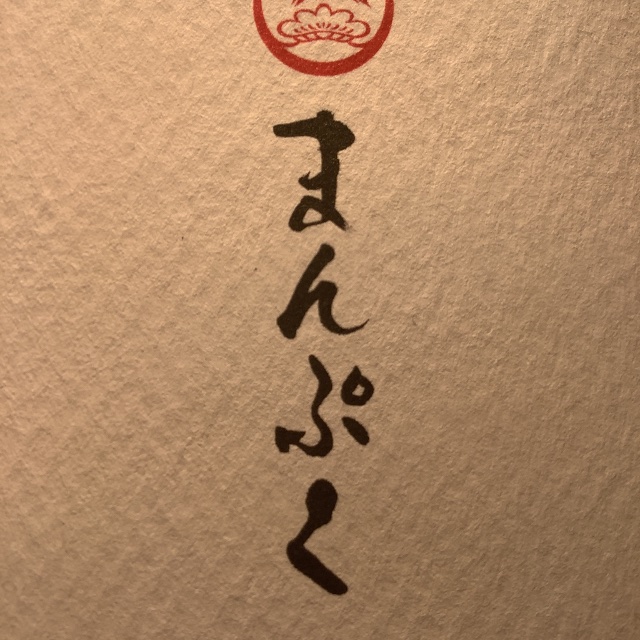 まんぷく